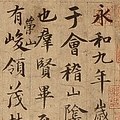 永和九年歲
于會稽山陰
也羣賢畢至
崇山
有峻領茂林